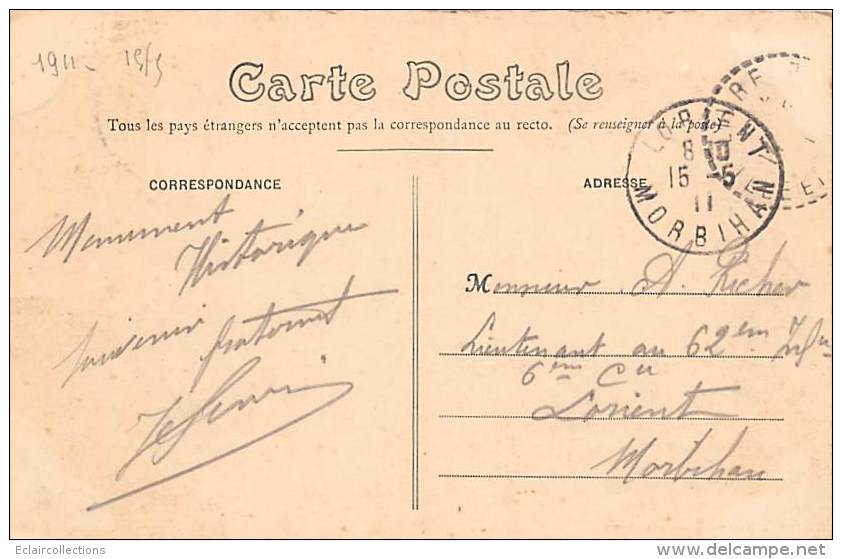 1911 - 15/5
Carte Postale
Tous les pays étrangers n'acceptent pas la correspondance au recto. (Se renseigner à la poste)
CORRESPONDANCE
Monument
Historique
Souvenir fraternel
ADRESSE
LORIENT
8
15 - 5
11
MORBIHAN
Monsieur A. Richer
Lieutenant au 62em
6em Cie
Lorient
Morbihan
Eclaircollections
delcampe.net